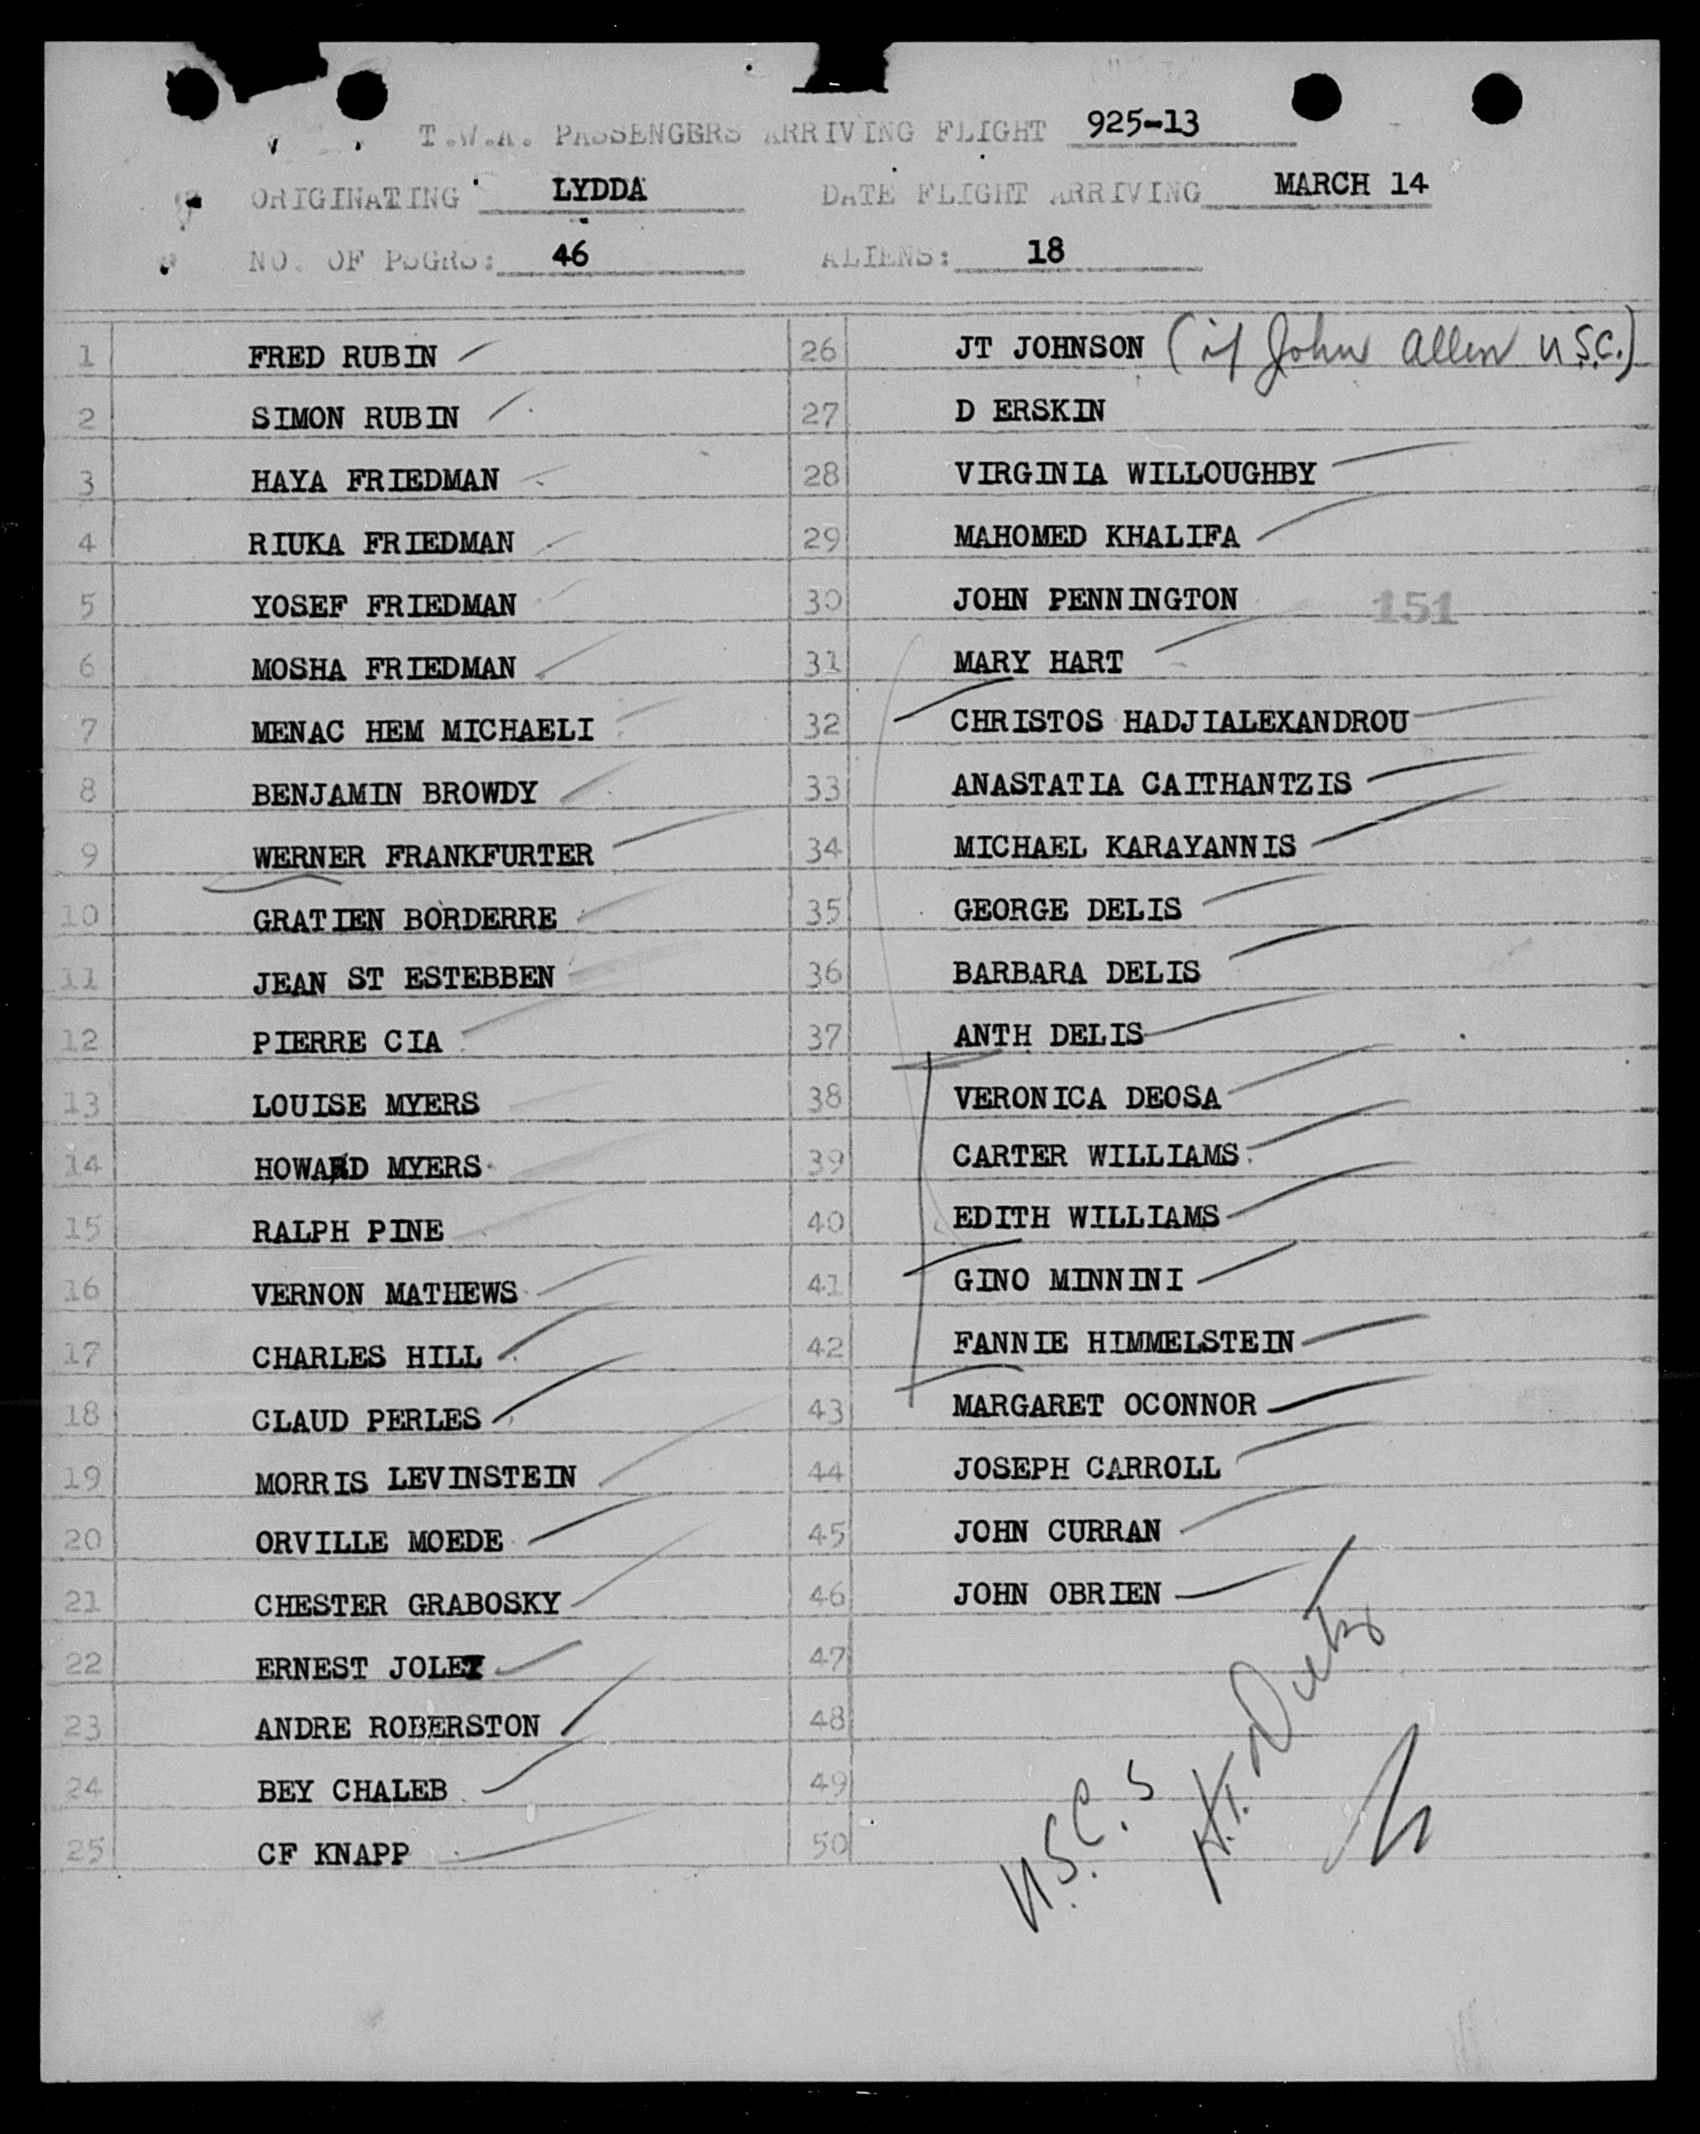 T.W.A. PASSENGERS ARRIVING FLIGHT 925-13
ORIGINATING LYDDA DATE FLIGHT ARRIVING MARCH 14
NO. OF PSGRS: 46 ALIENS: 18
1 FRED RUBIN
2 SIMON RUBIN
3 HAYA FRIEDMAN
4 RIUKA FRIEDMAN
5 YOSEF FRIEDMAN
6 MOSHA FRIEDMAN
7 MENAC HEM MICHAELI
8 BENJAMIN BROWDY
9 WERNER FRANKFURTER
10 GRATIEN BORDERRE
11 JEAN ST ESTEBBEN
12 PIERRE CIA
13 LOUISE MYERS
14 HOWARD MYERS
15 RALPH PINE
16 VERNON MATHEWS
17 CHARLES HILL
18 CLAUD PERLES
19 MORRIS LEVINSTEIN
20 ORVILLE MOEDE
21 CHESTER GRABOSKY
22 ERNEST
23 ANDRE ROBERSTON
24 BEY CHALEB
25 CF KNAPP
26 JT JOHNSON (if John Allen U.S.C.)
27 D ERSKIN
28 VIRGINIA WILLOUGHBY
29 MAHOMED KHALIFA
30 JOHN PENNINGTON
151
31 MARY HART
32 CHRISTOS HADJIALEXANDROU
33 ANASTATIA CAITHANTZIS
34 MICHAEL KARAYANNIS
35 GEORGE DELIS
36 BARBARA DELIS
37 ANTH DELIS
38 VERONICA DEOSA
39 CARTER WILLIAMS
40 EDITH WILLIAMS
41 GINO MINNINI
42 FANNIE HIMMELSTEIN
43 MARGARET OCONNOR
44 JOSEPH CARROLL
45 JOHN CURRAN
46 JOHN OBRIEN
47
48
49
50
U.S.C. 5